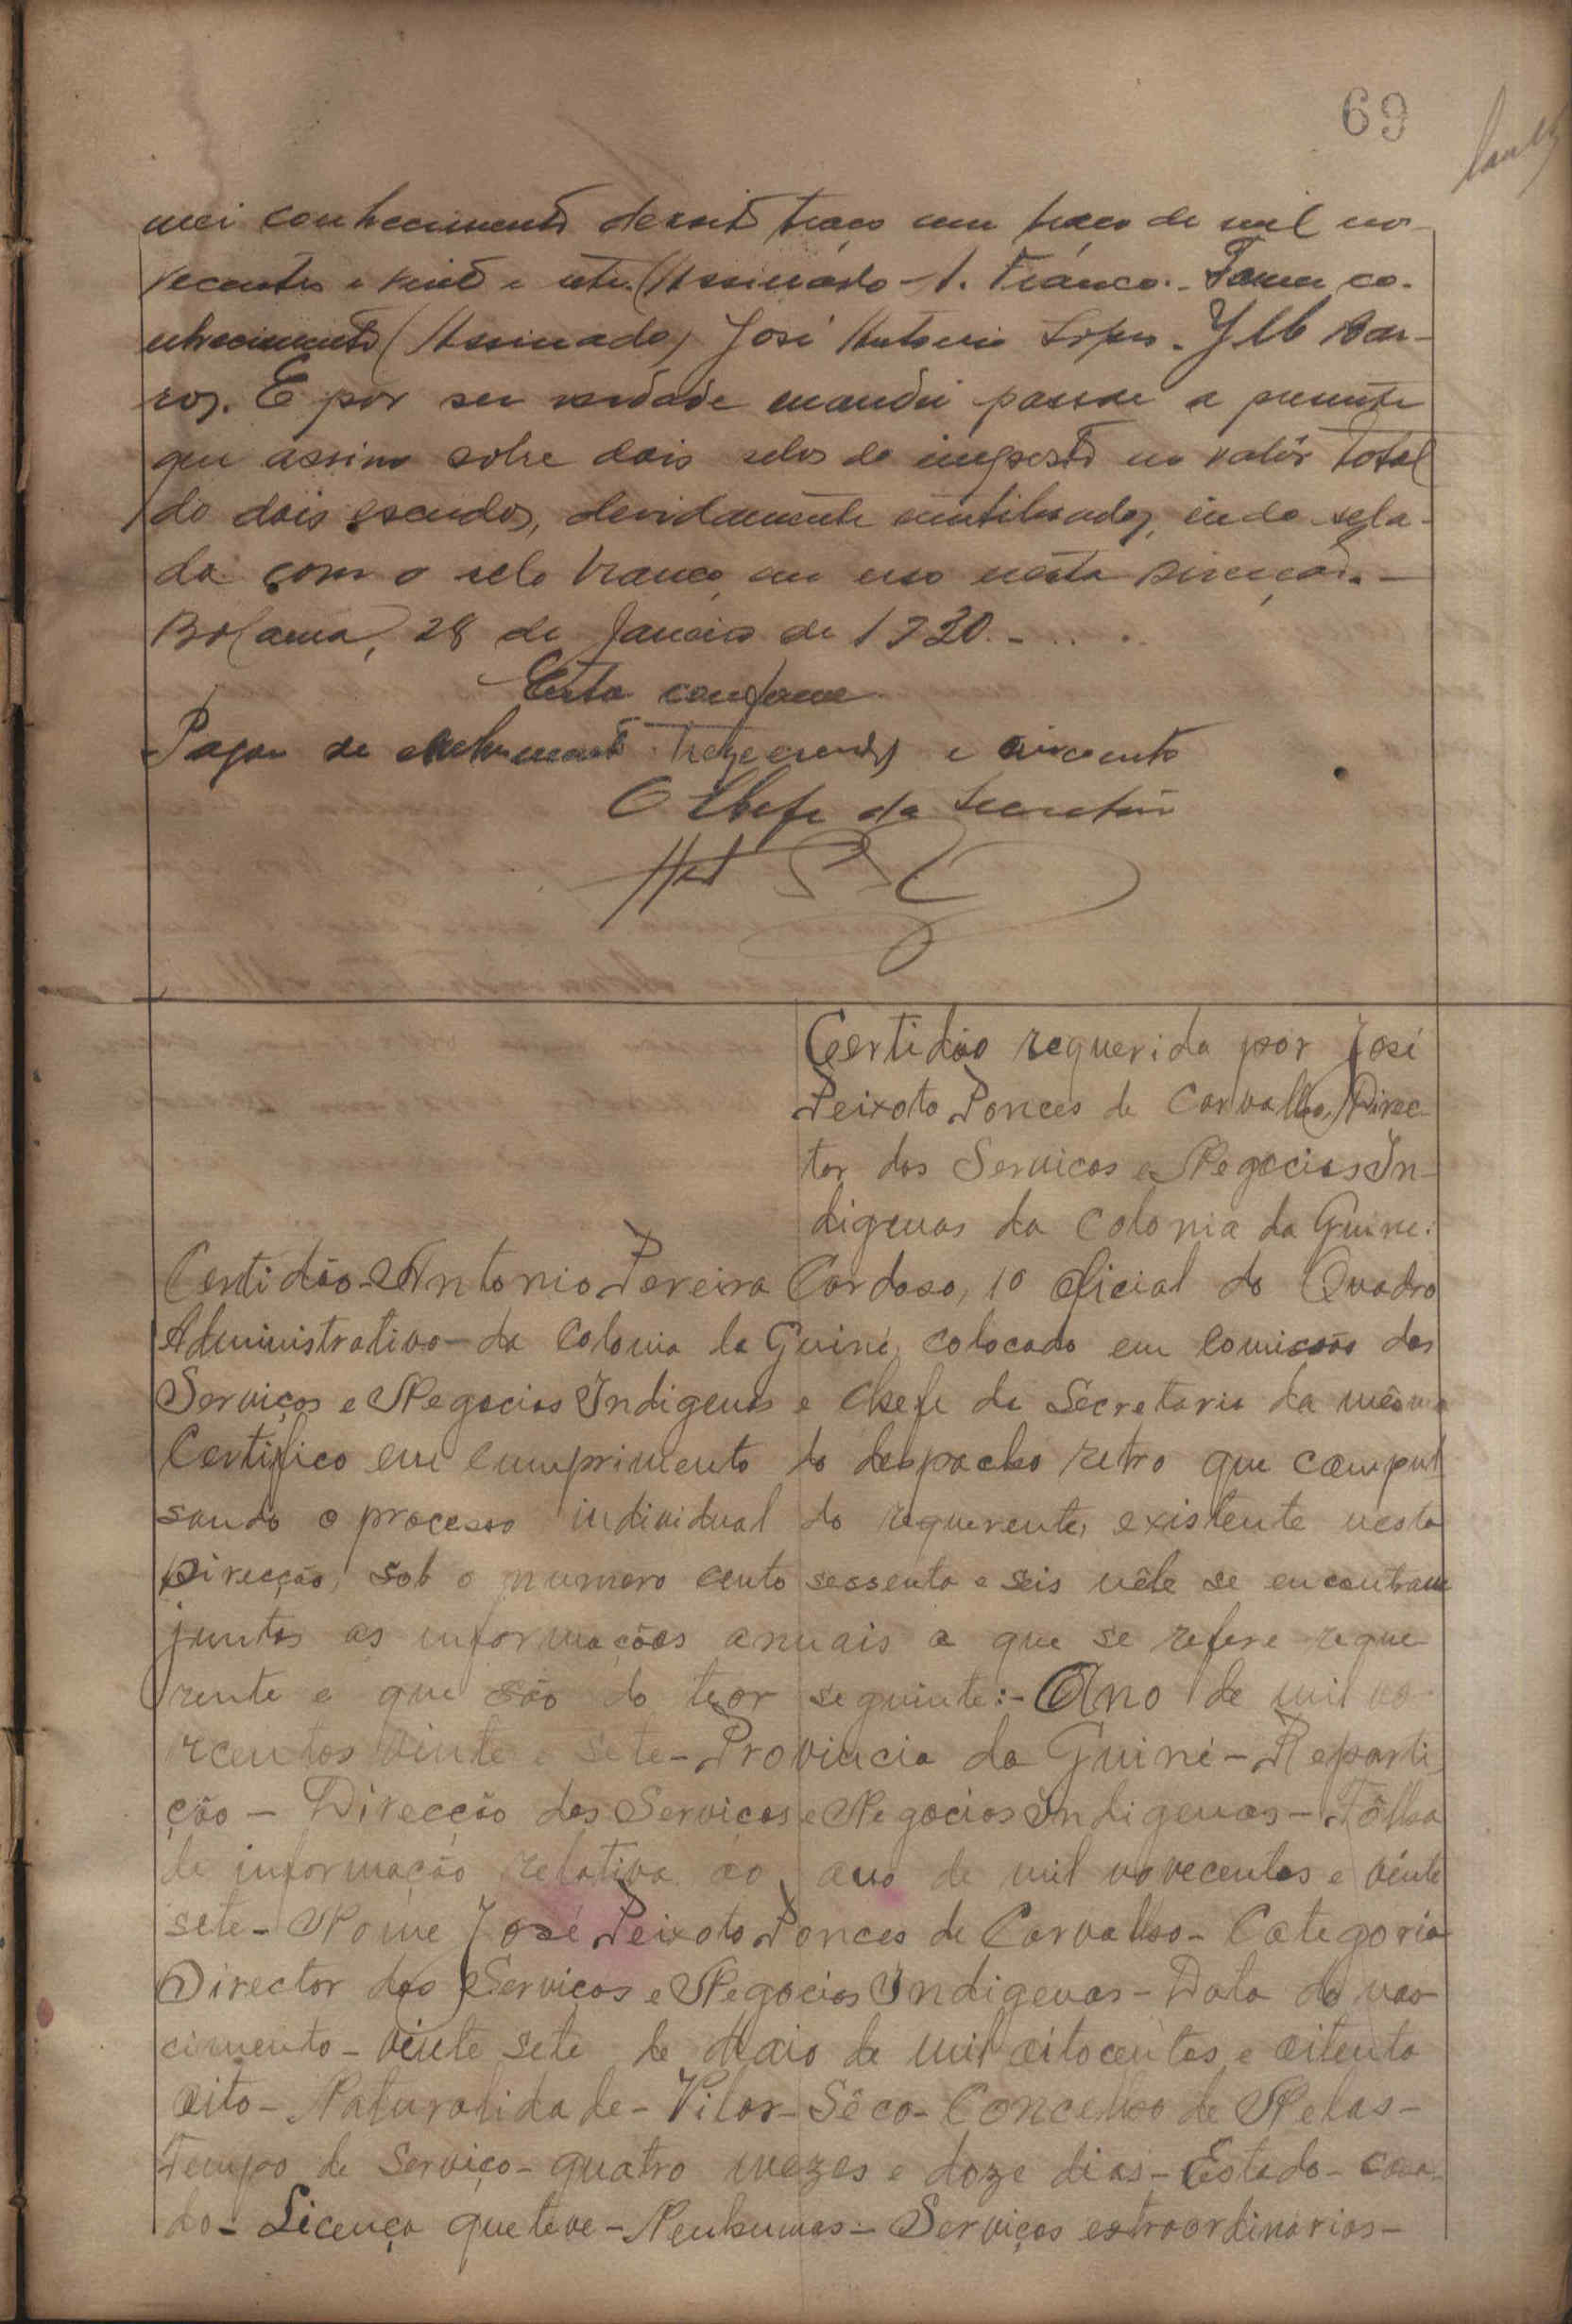 69
mei conhecimento dezoito traço um traço de mil no-
vecentos e vinte e sete. (Assinado - A. Franco. - Tomei co-
nhecimento (Assinado) José Antonio Lopes. Bar-
ros. E por ser verdade mandei passar a presente
que assino sobre dois selos do imposto no valôr total
de dois escudos, devidamente inutilisados, indo sela-
da com o selo branco em uso nesta Direcção. -
Bolama, 28 de Janeiro de 1930. - . . .
Está conforme
Pagou de emolumentos treze escudos e cincoenta
O Chefe da Secretaria
Certidão requerida por José
Peixoto Ponces de Carvalho, Direc-
tor dos Servicos e Negocios In-
digenas da Colonia da Guine:
Certidão - Antonio Pereira Cardoso, 1º oficial do Quadro
Administrativo - da Colonia da Guiné, colocado em comissão dos
Serviços e Negocios Indigenas e Chefe da Secretaria da mêsma
Certifico em cumprimento do despacho retro que compul
sando o processo individual do requerente, existente nesta
Direcção, sob o numero cento sessenta e seis nêle se encontram
juntas as informações anuais a que se refere reque
rente e que são do teor seguinte: - Ano de mil no-
vecentos vinte e sete - Provincia da Guiné - Reparti
ção - Direcção dos Servicos e Negocios Indigenas - Fôlha
de informação relativa ao ano de mil novecentos e vinte
sete - Nome José Peixoto Ponces de Carvalho - Categoria
Director dos Serviços e Negocios Indigenas - Data do nas
cimento - vinte sete de Maio de mil oitocentos e oitenta
oito - Naturalidade - Vilar - Sêco - Concelho de Nelas -
Tempo de Serviço - quatro mezes e doze dias - Estado - casa-
do - Licença que teve - Nenhumas - Serviços extraordinarios -